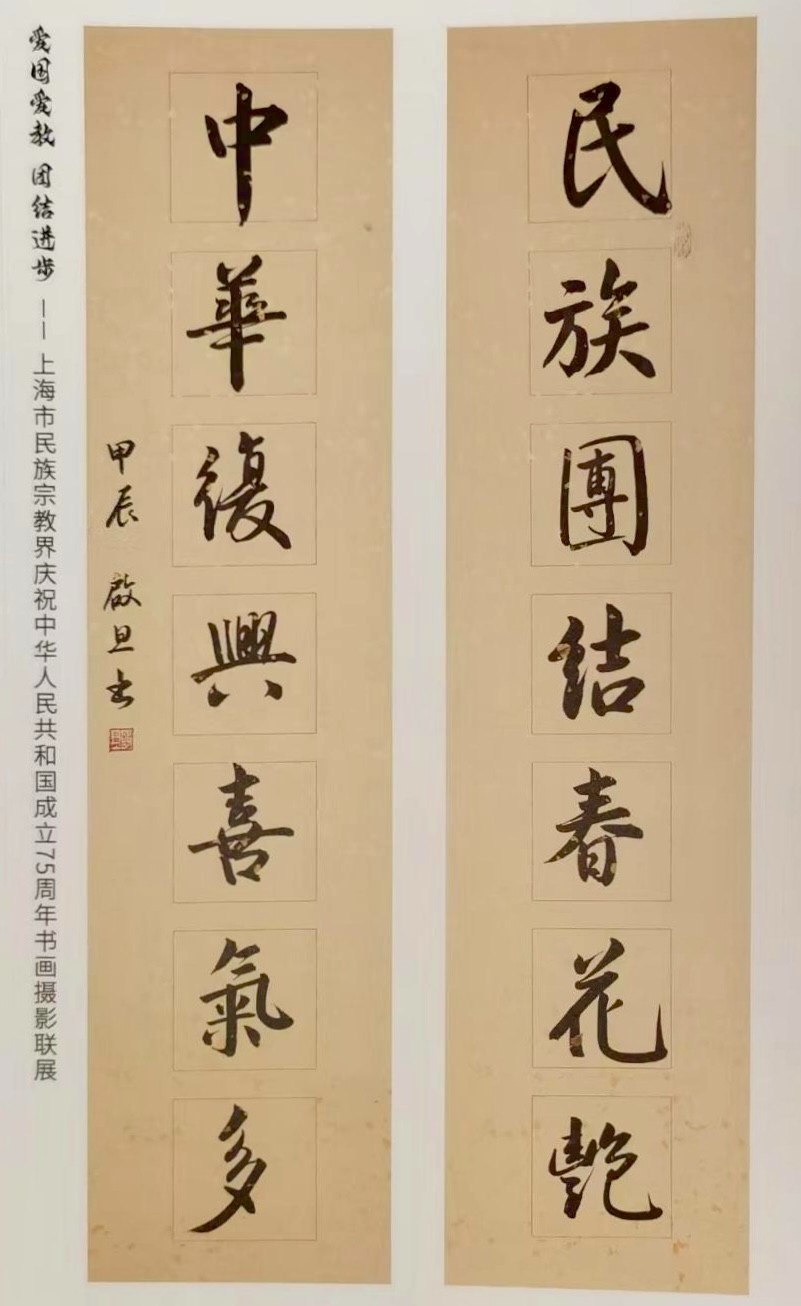 民族團結春花艷
中華復興喜氣多
甲辰 啟旦书
爱国爱教 团结进步 —— 上海市民族宗教界庆祝中华人民共和国成立75周年书画摄影联展